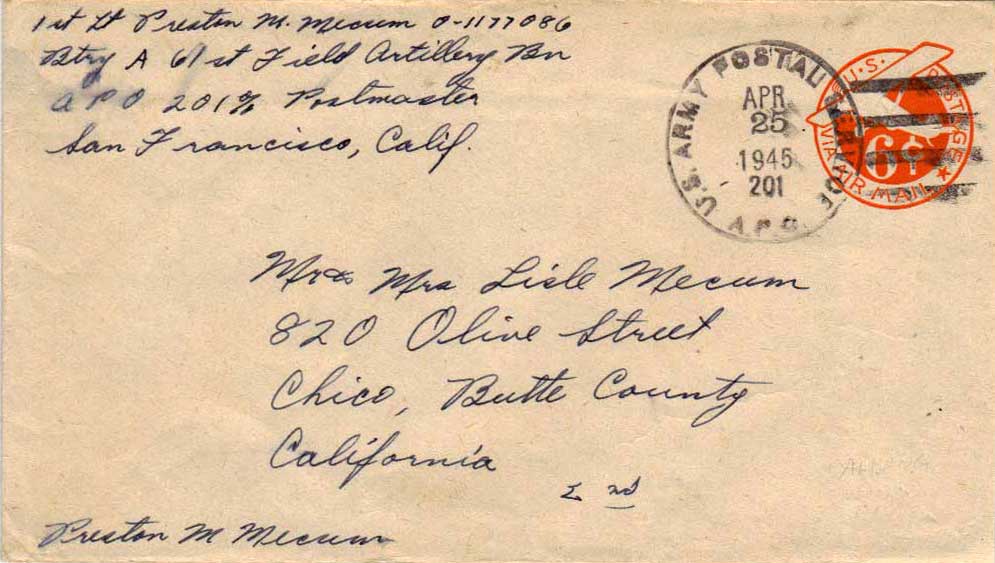 1st Lt Preston M. Mecum O-1177086
Btry A 61st Field Artillery Bn
A P O 201 % Postmaster
San Francisco, Calif.
U.S. ARMY POSTAL SERVICE
APR
25
1945
201
A.P.O.
U.S. POSTAGE
6¢
VIA AIR MAIL
Mr & Mrs Lisle Mecum
820 Olive Street
Chico, Butte County
California
2 nd
Preston M Mecum